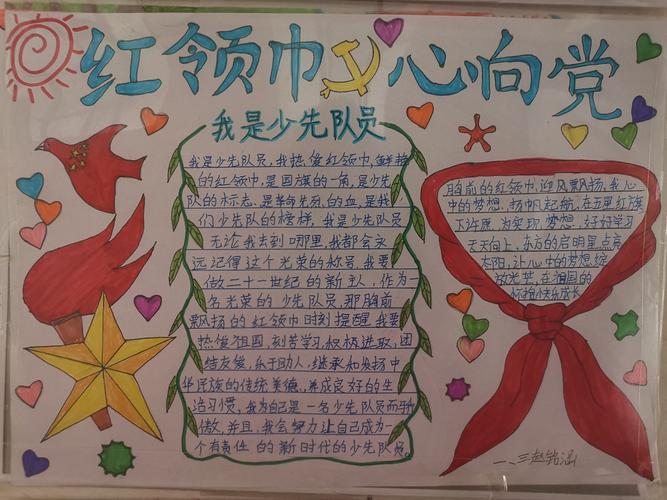 红领巾 心向党
我是少先队员
我是少先队员,我热爱红领巾,鲜艳
的红领巾,是国旗的一角,是少先
队的标志,是革命先烈的血,是我
们少先队的榜样,我是少先队员
无论我去到哪里,我都会永
远记得这个光荣的称号,我要
做二十一世纪的新主人,作为一
名光荣的少先队员,那胸前
飘扬的红领巾时刻提醒我要
热爱祖国,刻苦学习,积极进取,团
结友爱,乐于助人,继承和发扬中
华民族的传统美德,养成良好的生
活习惯,我为自己是一名少先队员而骄
傲,并且,我会努力让自己成为一
个有责任的新时代的少先队员。
胸前的红领巾,迎风飘扬,我心
中的梦想,扬帆起航,在五星红旗
下许愿,为实现梦想,好好学习
天天向上,东方的启明星点亮
太阳,让心中的梦想绽
放光芒,在祖国的
怀抱快乐成长
一、三赵铭涵